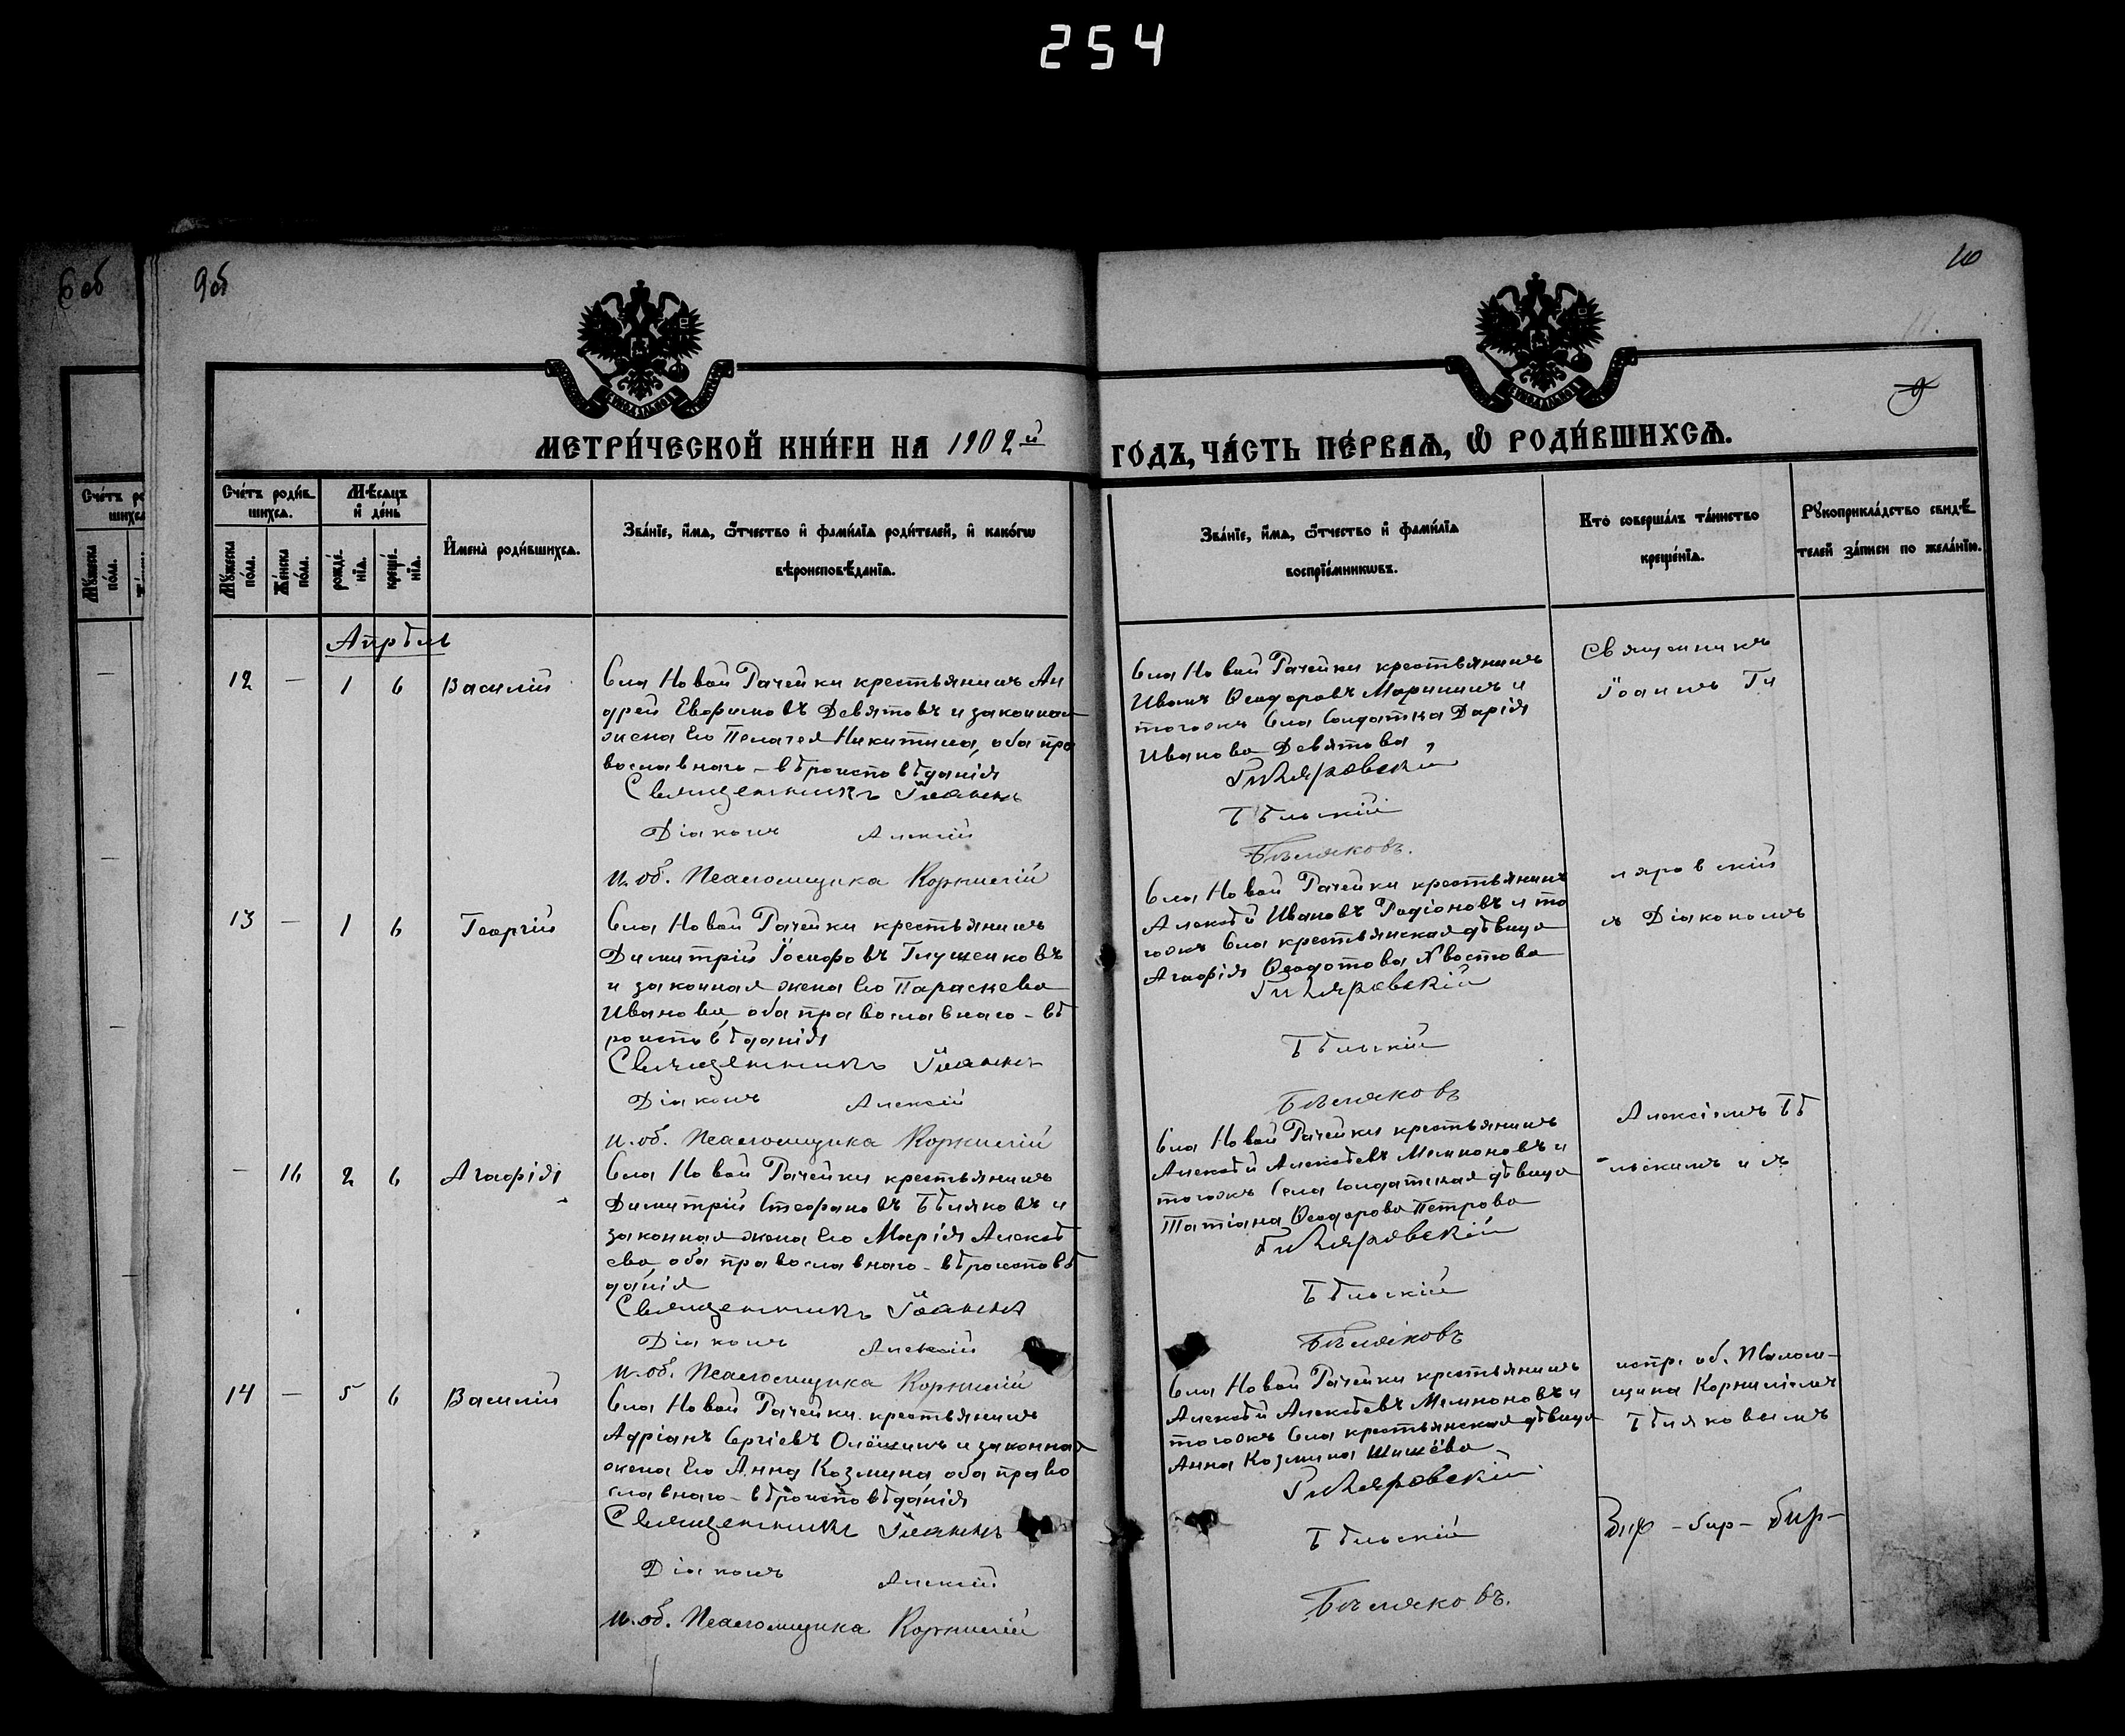 254
6 об
9об
10
11.
9
МЕТРИ́ЧЕСКОЙ КНИ́ГИ НА 1902й ГО́ДЪ, ЧА́СТЬ ПЕ́РВАѦ, Ѡ РОДИ́ВШИХСѦ.
Сче́тъ роди́в
шихсѧ.
Мѣ́сѧцъ
и де́нь
Мꙋ́жеска по́ла.
Же́нска по́ла.
рожде́нїѧ.
креще́нїѧ.
И҆мена̀ роди́вшихсѧ.
Зва́нїе, и҆́мѧ, ѻ҆́тчество и҆ фами́лїѧ роди́телей, и҆ како́гѡ
вѣроисповѣ́данїѧ.
Зва́нїе, и҆́мѧ, ѻ҆́тчество и҆ фами́лїѧ
воспрїе́мникѡвъ.
Кто̀ соверша́лъ та́инство
креще́нїѧ.
Рꙋкоприкла́дство свидѣ́
телей за́писи по жела́нїю.
Апрѣль
12 — 1 6 Василій
Села Новой Рачейки крестьянинъ Ан
дрей Евфимовъ Девятовъ и законная
жена его Пелагея Никитина, оба пра
вославнаго-вѣроисповѣданія
Священникъ Іоаннъ
Діаконъ Алексій
И. об. Псаломщика Корнилій
Села Новой Рачейки крестьянинъ
Иванъ Ѳеодоровъ Маринин и
тогожъ села солдатка Дарія
Иванова Девятова
Гиляровскій
Бѣльскій
Бѣляковъ.
Священникъ
Іоаннъ Ги
13 — 1 6 Георгій
Села Новой Рачейки крестьянинъ
Димитрій Іосифовъ Глущенковъ
и законная жена его Параскева
Иванова, оба православнаго-вѣ
роисповѣданія
Священникъ Іоаннъ
Діаконъ Алексій
И. об. Псаломщика Корнилій
Села Новой Рачейки крестьянинъ
Алексѣй Ивановъ Родіоновъ и то
гожъ села крестьянская дѣвица
Агафія Ѳеодотова Хвостова
Гиляровскій
Бѣльскій
Бѣляковъ
ляровскій
съ Діакономъ
— 16 2 6 Агафія
Села Новой Рачейки крестьянинъ
Димитрій Стефановъ Бѣляковъ и
законная жена его Марія Алексѣ
ева, оба православнаго-вѣроисповѣ
данія
Священникъ Іоаннъ
Діаконъ Алексій
И. об. Псаломщика Корнилій
Села Новой Рачейки крестьянинъ
Алексѣй Алексѣевъ Мемноновъ и
тогожъ села солдатская дѣвица
Татіана Ѳеодорова Петрова
Гиляровскій
Бѣльскій
Бѣляковъ
Алексіемъ Бѣ
льскимъ и съ
14 — 5 6 Василій
Села Новой Рачейки крестьянинъ
Адріанъ Сергіевъ Олёшинъ и законная
жена его Анна Козмина оба право
славнаго-вѣроисповѣданія
Священникъ Іоаннъ
Діаконъ Алексій
И. об. Псаломщика Корнилій
Села Новой Рачейки крестьянинъ
Алексѣй Алексѣевъ Мемноновъ и
тогожъ села крестьянская дѣвица
Анна Козмина Шишёва
Гиляровскій
Бѣльскій
Бѣляковъ.
испр. об. Псалом-
щика Корниліемъ
Бѣляковымъ